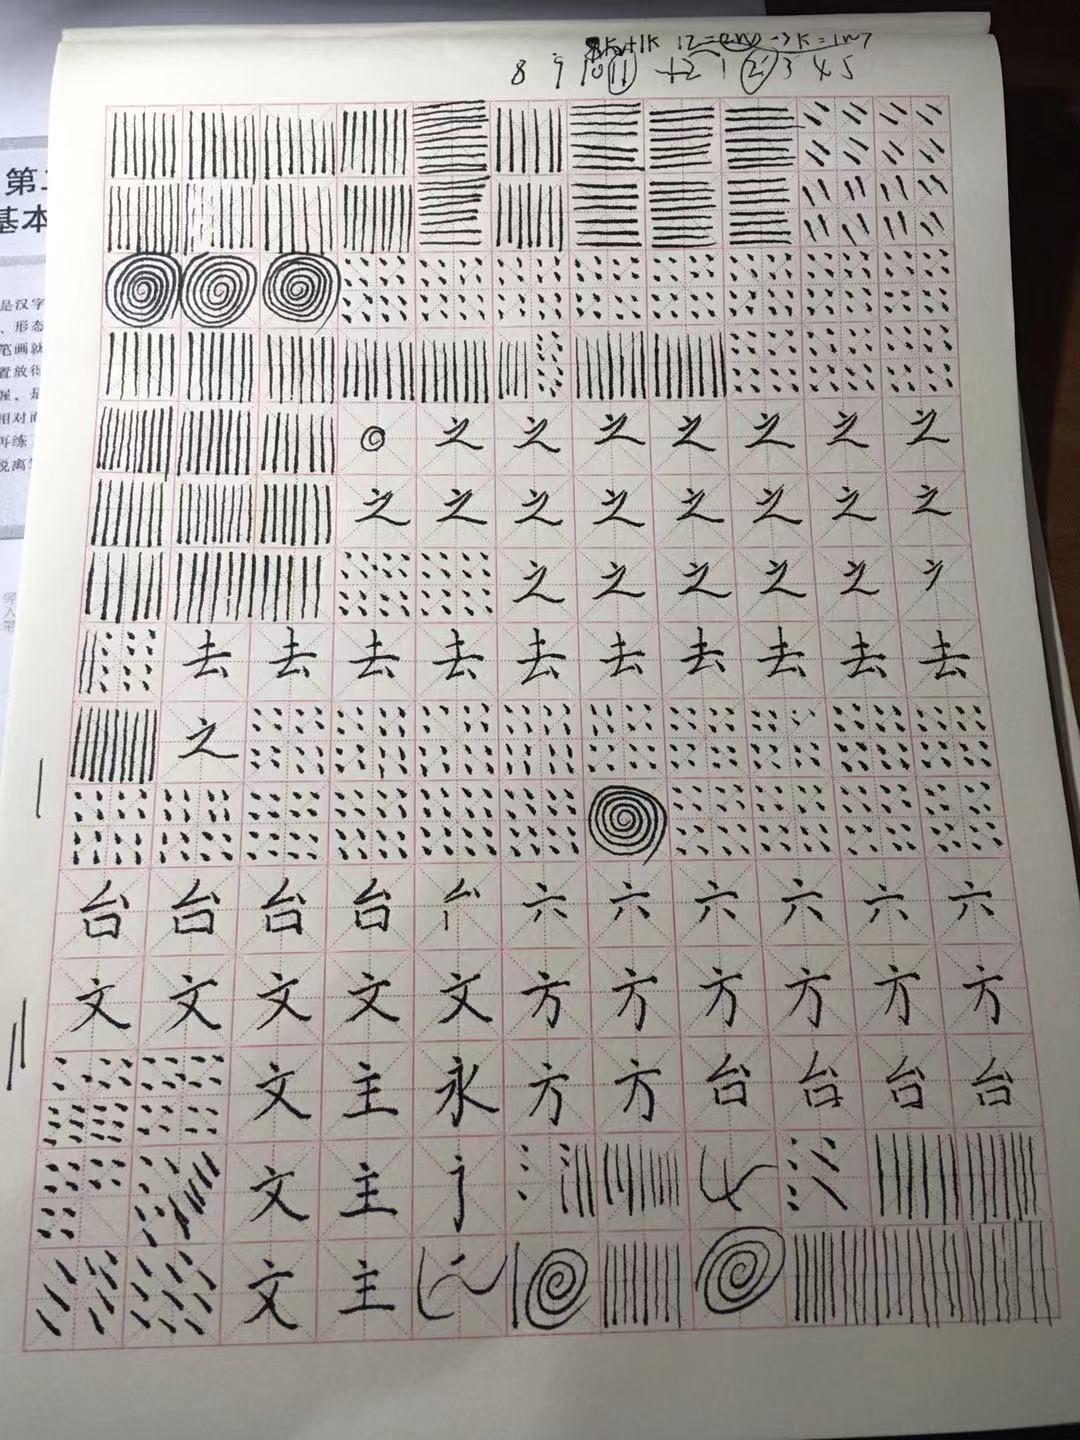 8 9 10 11 十2 1 2 3 4 5
第二
基本
是汉字
、形态
笔画就
置放得
握，是
相对而
再练
脱离
之 之 之 之 之 之 之
之 之 之 之 之 之 之 之
之 之 之 之 之
去 去 去 去 去 去 去 去 去 去
之
台 台 台 台 六 六 六 六 六 六
文 文 文 文 文 方 方 方 方 方 方
文 主 永 方 方 台 台 台 台
文 主
文 主